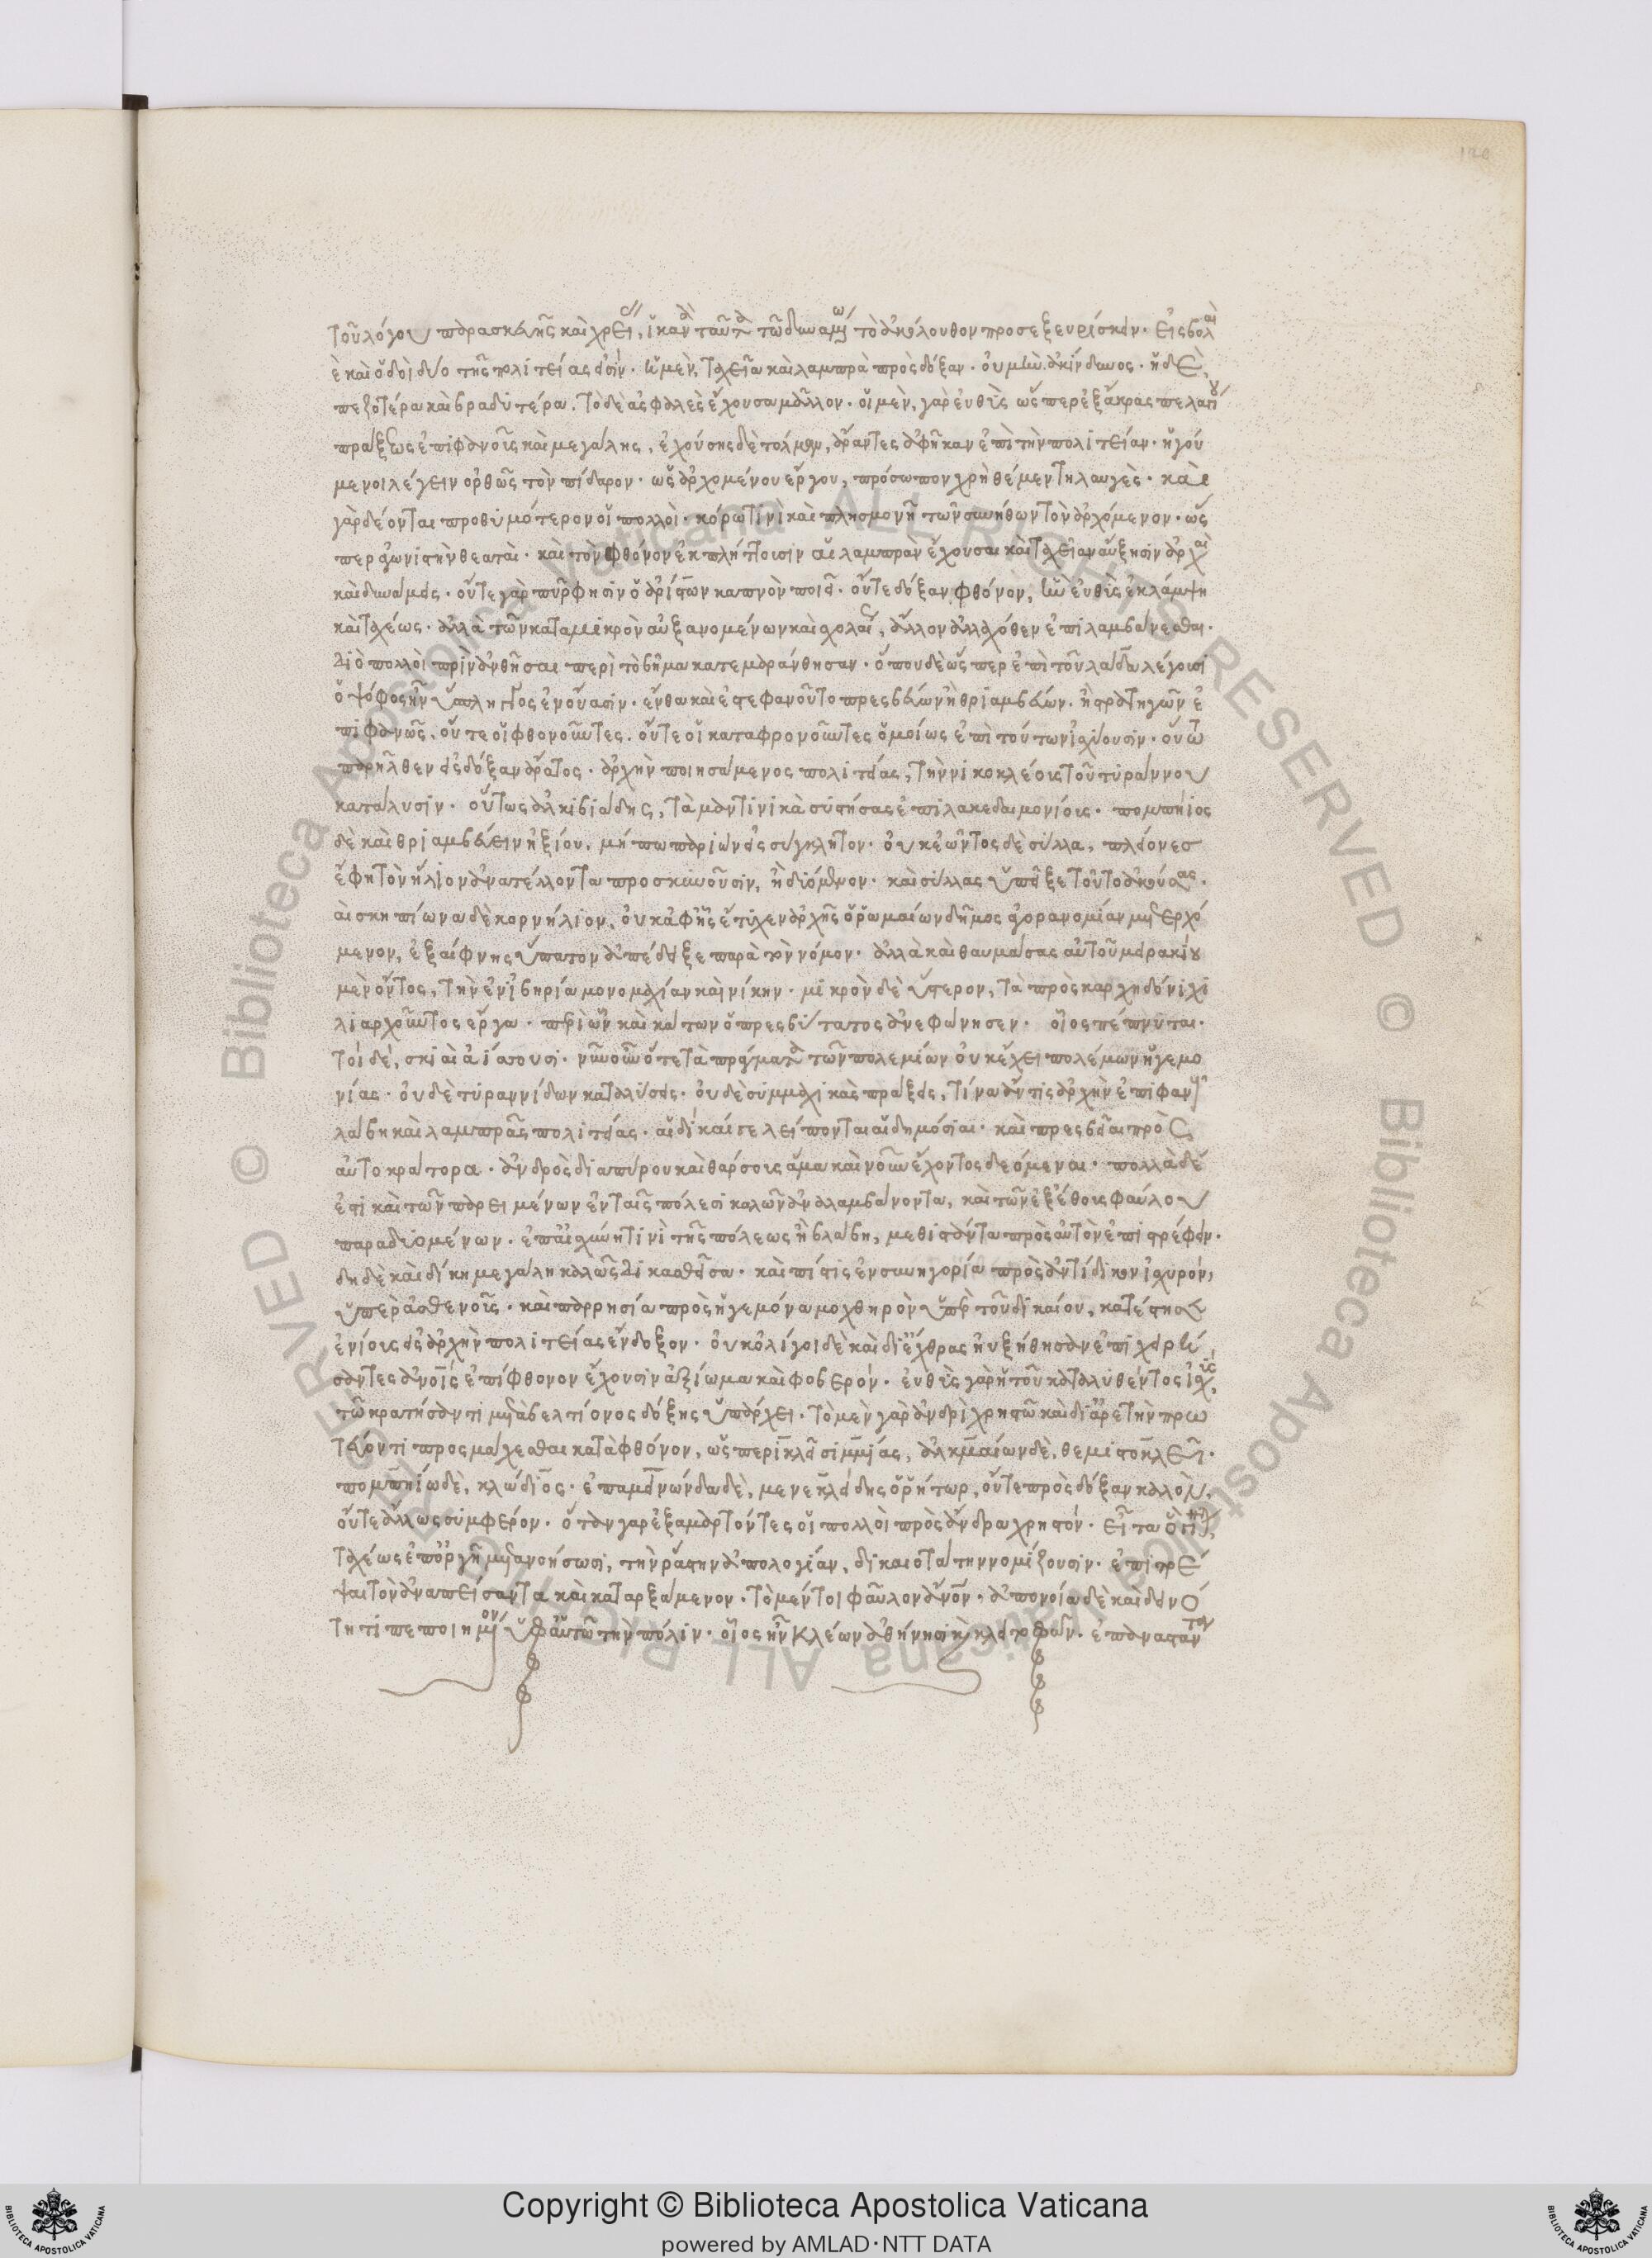 τοῦ λόγου παρασκευῆς καὶ χρεί, ἱκανὰ ταῦτα τῷ δυναμένῳ τὸ ἀκόλουθον προσεξευρίσκειν. εἰσβολαὶ
ὲ καὶ ὁδοὶ δύο τῆς πολιτείας εἰσίν. ἡ μὲν, ταχεῖα καὶ λαμπρὰ πρὸς δόξαν. οὐ μὴν ἀκίνδυνος. ἡ δὲ,
πεζοτέρα καὶ βραδυτέρα. τὸ δὲ ἀσφαλὲς ἔχουσα μᾶλλον. οἱ μὲν, γὰρ εὐθὺς ὥσπερ ἐξ ἄκρας πελαγίου
πράξεως ἐπιφανοῦς καὶ μεγάλης, ἐχούσης δὲ τόλμαν, ἄραντες ἀφῆκαν ἐπὶ τὴν πολιτείαν. ἡγού
μενοι λέγειν ὀρθῶς τὸν πίδαρον. ὡς ἀρχομένου ἔργου, πρόσωπον χρὴ θέμεν τηλαυγές. καὶ
γὰρ δέονται προθυμότερον οἱ πολλοὶ. κόρῳ τινὶ καὶ πλησμονῇ τῶν συνήθων τὸν ἀρχόμενον. ὥς
περ ἀγωνιστὴν θεαταὶ. καὶ τὸν φθόνον ἐκπλήττουσιν αἱ λαμπρὰν ἔχουσαι καὶ ταχεῖαν αὔξησιν ἀρχαὶ
καὶ δυνάμεις. οὔτε γὰρ πῦρ φησιν ὁ ἀρίστων καπνὸν ποιεῖ. οὔτε δόξαν φθόνον, ἢν εὐθὺς ἐκλάμψῃ
καὶ ταχέως. ἀλλὰ τῶν κατὰ μικρὸν αὐξανομένων καὶ σχολαί, ἄλλον ἀλλαχόθεν ἐπιλαμβάνεσθαι.
διὸ πολλοὶ πρὶν ἀνθῆσαι περὶ τὸ βῆμα κατεμαράνθησαν. ὅπου δὲ ὥσπερ ἐπὶ τοῦ λάδου λέγουσι
ὁ ψόφος ἦν ὕσπληγγος ἐν οὔασιν. ἔνθα καὶ ἐστεφανοῦτο πρεσβεύων ἢ θριαμβεύων. ἢ στρατηγῶν ἐ
πιφανῶς. οὔτε οἱ φθονοῦντες. οὔτε οἱ καταφρονοῦντες ὁμοίως ἐπὶ τούτων ἰσχύουσιν. οὕτω
παρῆλθεν εἰς δόξαν ἄρατος. ἀρχὴν ποιησάμενος πολιτείας, τὴν νικοκλέους τοῦ τυράννου
κατάλυσιν. οὕτως ἀλκιβιάδης, τὰ μαντινικὰ συστήσας ἐπὶ λακεδαιμονίους. πομπήιος
δὲ καὶ θριαμβεύειν ἠξίου, μήπω παριὼν εἰς σύγκλητον. οὐκ ἐῶντος δὲ σύλλα, πλείονες
ἔφη τὸν ἥλιον ἀνατέλλοντα προσκυνοῦσιν, ἢ δυόμενον. καὶ σύλλας ὑπεῖξε τοῦτο ἀκούσας.
αὶ σκηπίωνα δὲ κορνήλιον, οὐκ ἀφ' ἧς ἔτυχεν ἀρχῆς ὁ ῥωμαίων δῆμος ἀγορανομίαν μετερχό
μενον, ἐξαίφνης ὕπατον ἀπέδειξε παρὰ τὸν νόμον. ἀλλὰ καὶ θαυμάσας αὐτοῦ μειρακίου
μὲν ὄντος, τὴν ἐν ἰβηρίᾳ μονομαχίαν καὶ νίκην. μικρὸν δὲ ὕστερον, τὰ πρὸς καρχηδόνι χι
λιαρχοῦντος ἔργα. περὶ ὧν καὶ κάτων ὁ πρεσβύτατος ἀνεφώνησεν. οἶος πέπνυται.
τοὶ δέ, σκιαὶ ἀίσσουσι. νῦν οὖν ὅτε τὰ πράγματα τῶν πολεμίων οὐκ ἔχει πολέμων ἡγεμο
νίας. οὐδὲ τυραννίδων καταλύσεις. οὐδὲ συμμαχικὰς πράξεις, τίνα ἄν τις ἀρχὴν ἐπιφανοῦς
λάβῃ καὶ λαμπρᾶς πολιτείας. αἱ δίκαί τε λείπονται αἱ δημόσιαι. καὶ πρεσβεῖαι πρὸς
αὐτοκράτορα. ἀνδρὸς διαπύρου καὶ θάρσους ἅμα καὶ νοῦν ἔχοντος δεόμεναι. πολλὰ δὲ
ἔστι καὶ τῶν παρειμένων ἐν ταῖς πόλεσι καλῶν ἀναλαμβάνοντα, καὶ τῶν ἐξ ἔθους φαύλου
παραδυομένων. ἐπ' αἰσχύνῃ τινὶ τῆς πόλεως ἢ βλάβῃ, μεθιστάντα πρὸς αὑτὸν ἐπιστρέφειν.
δη δὲ καὶ δίκη μεγάλη καλῶς δικασθεῖσα. καὶ πίστις ἐν συνηγορίᾳ πρὸς ἀντίδικον ἰσχυρόν,
ὑπὲρ ἀσθενοῦς. καὶ παρρησία πρὸς ἡγεμόνα μοχθηρὸν ὑπὲρ τοῦ δικαίου, κατέστησεν
ἐνίους εἰς ἀρχὴν πολιτείας ἔνδοξον. οὐκ ὀλίγοι δὲ καὶ δι' ἔχθρας ηὐξήθησαν ἐπιχειρή
σαντες ἀνοῖς ἐπίφθονον ἔχουσιν ἀξίωμα καὶ φοβερόν. εὐθὺς γὰρ ἡ τοῦ καταλυθέντος ἰσχὺς,
τῷ κρατήσαντι μετὰ βελτίονος δόξης ὑπάρχει. τὸ μὲν γὰρ ἀνδρὶ χρηστῷ καὶ δι' ἀρετὴν πρω
τεύοντι προσμάχεσθαι κατὰ φθόνον, ὡς περικλεῖ σιμμίας, ἀλκμαίων δὲ, θεμιστοκλεῖ.
πομπηίῳ δὲ, κλώδιος. ἐπαμεινώνδᾳ δὲ, μενεκλείδης ὁ ῥήτωρ, οὔτε πρὸς δόξαν καλόν,
οὔτε ἄλλως συμφέρον. ὅταν γὰρ ἐξαμαρτόντες οἱ πολλοὶ πρὸς ἄνδρα χρηστόν. εἶτα
ταχέως ἐπ' ὀργῇ μετανοήσωσι, τὴν ῥάστην ἀπολογίαν, δικαιοτάτην νομίζουσιν. ἐπιτρέ
ψαι τὸν ἀναπείσαντα καὶ καταρξάμενον. τὸ μέντοι φαῦλον ἄνον. ἀπονοίᾳ δὲ καὶ δεινό
τητι πεποιημένον ὑφ' αὑτῷ τὴν πόλιν. οἷος ἦν κλέων ἀθήνησι καὶ κλειτοφῶν. ἐπαναστάντων